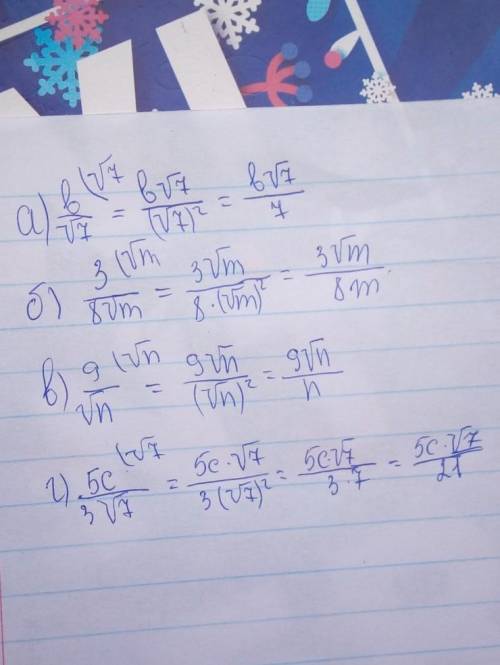 а) в/√7 (√7 = в√7/(√7)² = в√7/7
б) 3/8√m (√m = 3√m/8·(√m)² = 3√m/8m
в) 9/√n (√n = 9√n/(√n)² = 9√n/n
г) 5c/3√7 (√7 = 5c·√7/3(√7)² = 5c√7/3·7 = 5c·√7/21